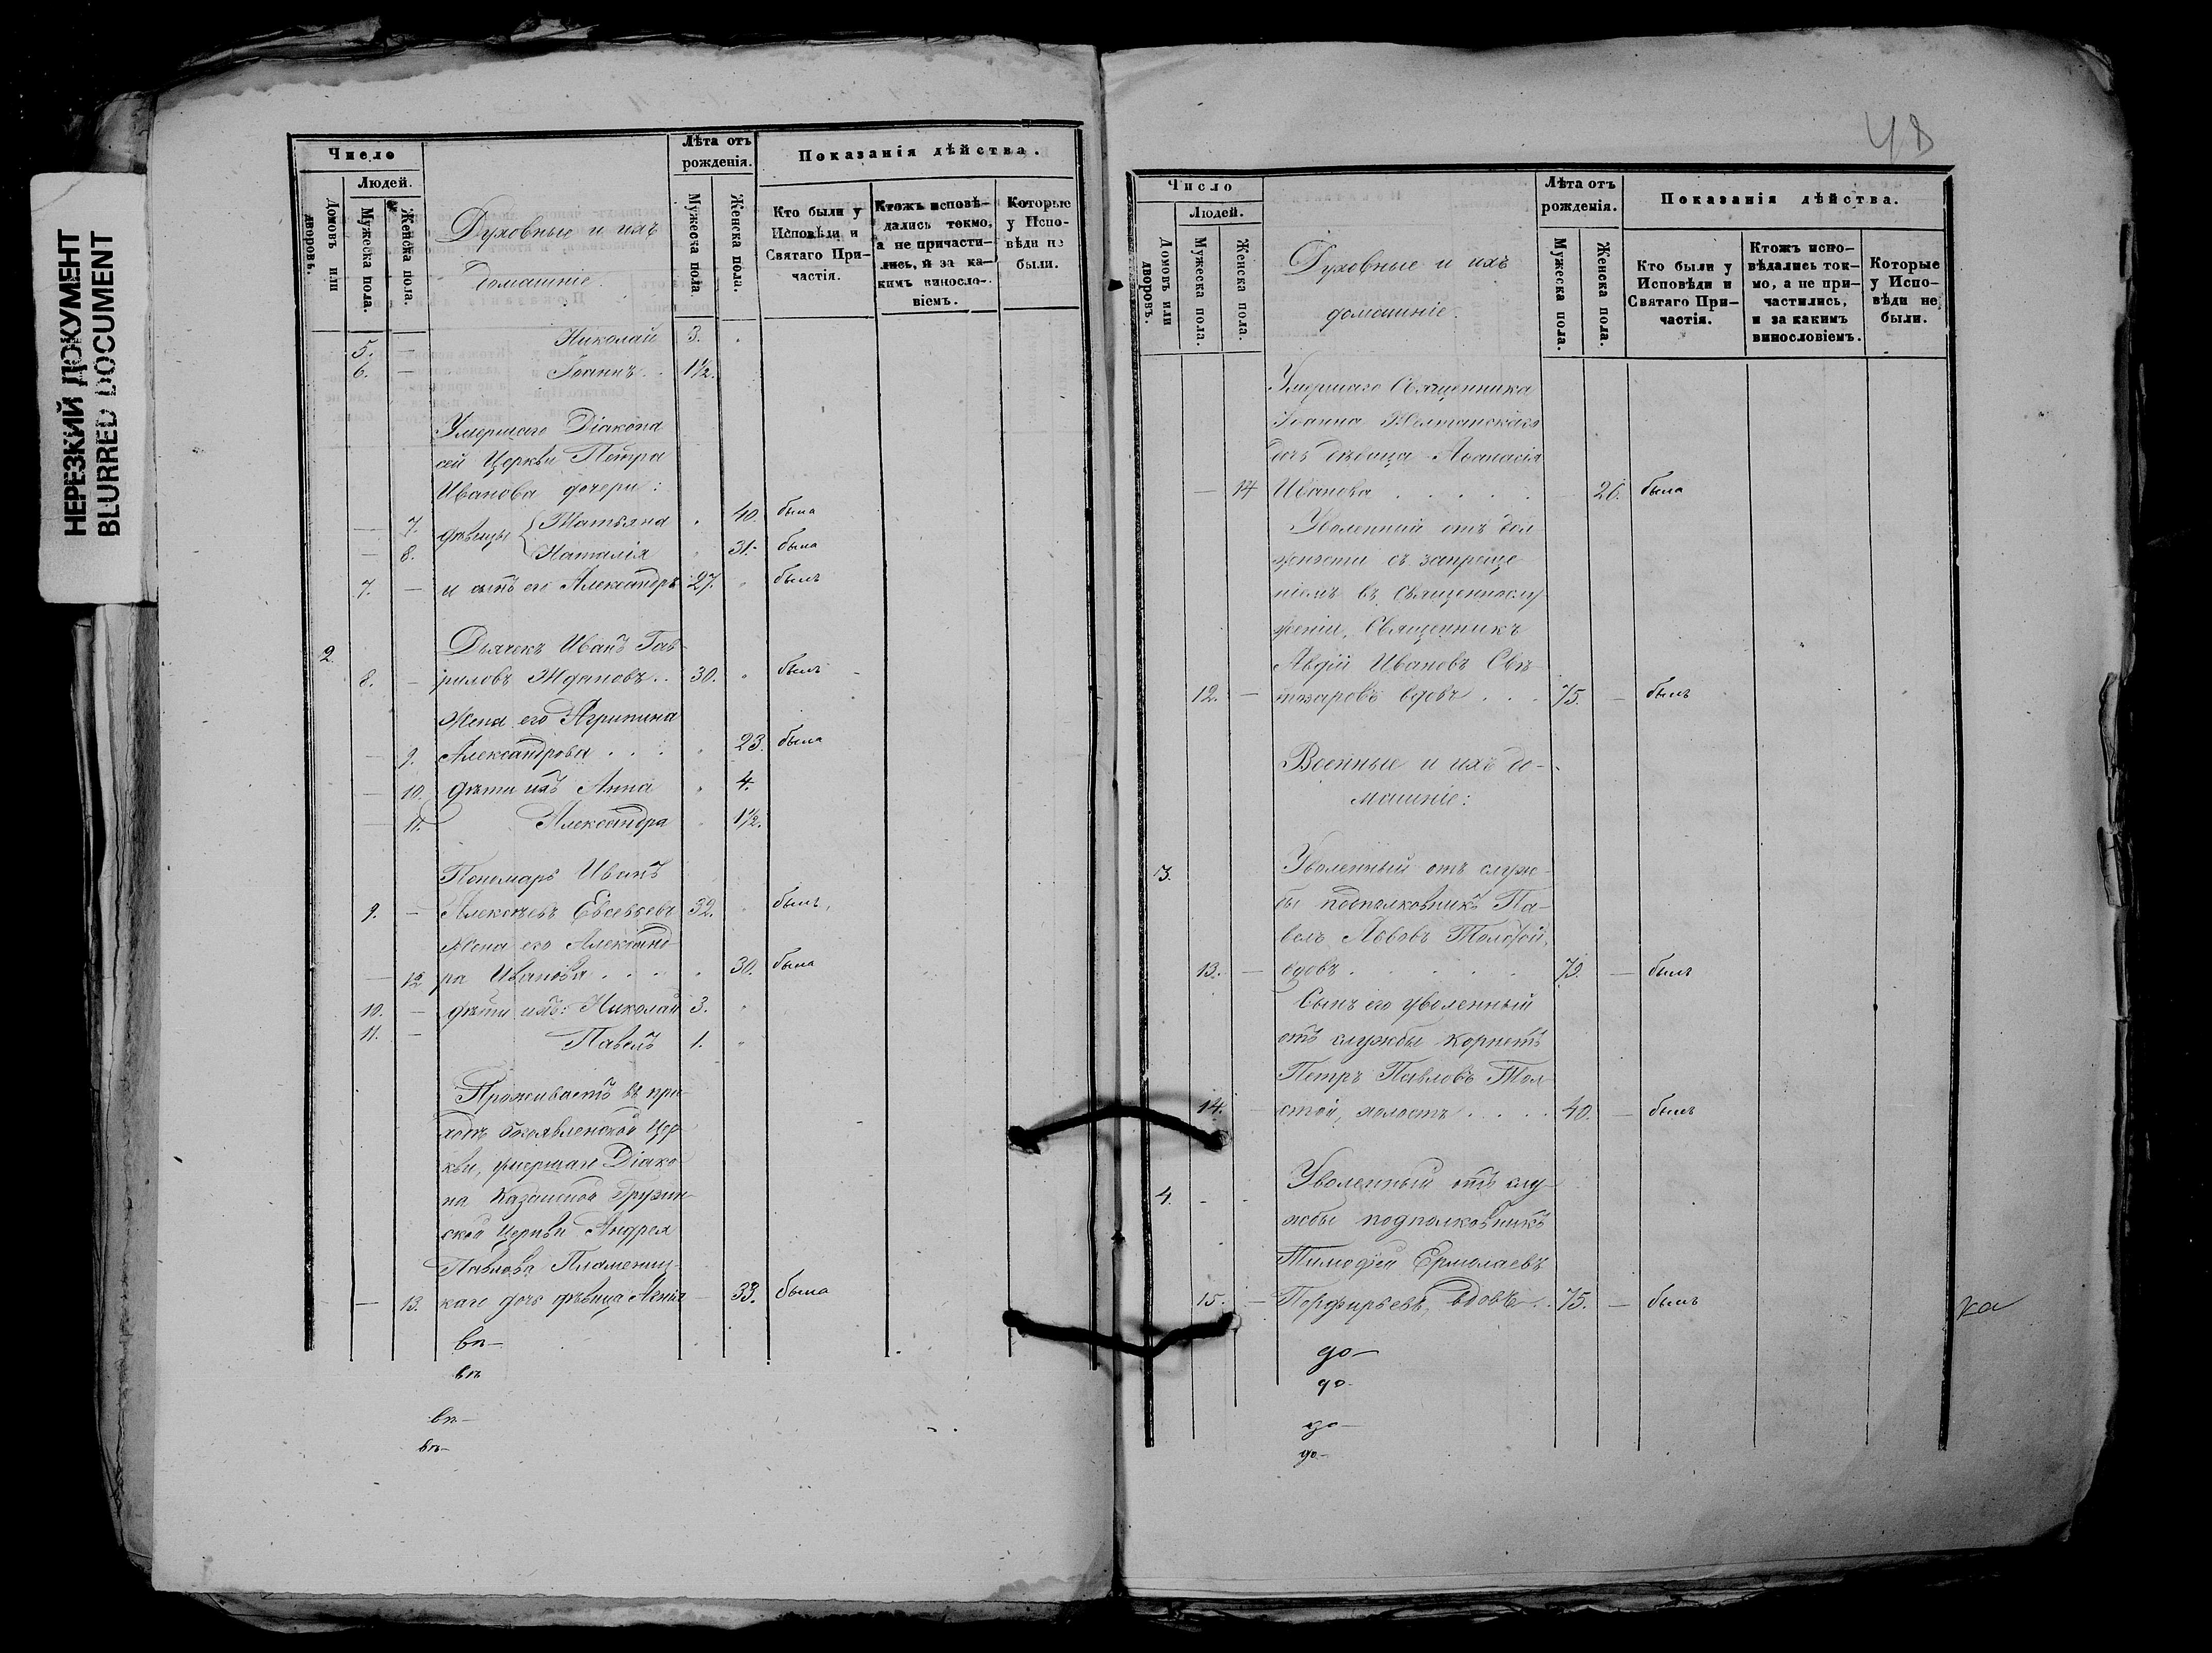 НЕРЕЗКИЙ ДОКУМЕНТ
BLURRED DOCUMENT
Число
Людей.
Домовъ или дворовъ.
Мужеска пола.
Женска пола.
Духовные и ихъ
домашніе.
Лѣта отъ
рожденія.
Мужеска пола.
Женска пола.
Показанія дѣйства.
Кто были у
Исповѣди и
Святаго При-
частія.
Ктожъ исповѣ-
дались токмо,
а не причасти-
лись, и за ка-
кимъ виносло-
віемъ.
Которые
у Испо-
вѣди не
были.
5. — Николай 3.
6. — Іоаннъ 1½.
Умершаго Діакона
сей Церкви Петра
Иванова дочери:
— 7. дѣвицы Татьяна 40. была
— 8. Наталія 31. была
7. — и сынъ его Александръ 27. былъ
2. Дьячекъ Иванъ Гав-
8. — риловъ Ждановъ.. 30. былъ
Жена его Агрипина
— 9. Александрова 23. была
— 10. дѣти ихъ Анна 4.
— 11. Александра 1½.
Пономарь Иванъ
9. — Алексѣевъ Евсевьевъ 32. былъ
Жена его Александ-
— 12 ра Иванова 30. была
10. — дѣти ихъ: Николай 3.
11. — Павелъ 1.
Проживаетъ въ при-
ходѣ Богоявленской Цер-
кви, умершаго Діако-
на Казанской Грузин-
ской Церкви Андрея
Павлова
— 13. каго дочь дѣвица 33. была
48
Число
Людей.
Домовъ или дворовъ.
Мужеска пола.
Женска пола.
Духовные и ихъ
домашніе.
Лѣта отъ
рожденія.
Мужеска пола.
Женска пола.
Показанія дѣйства.
Кто были у
Исповѣди и
Святаго При-
частія.
Ктожъ испо-
вѣдались ток-
мо, а не при-
частились,
и за какимъ
винословіемъ.
Которые
у Испо-
вѣди не
были.
Умершаго Священника
Іоанна
дочь дѣвица Аѳанасія
— 14 Иванова 26. была
Уволенный отъ дол-
жности съ запреще-
ніемъ въ священнослу-
женіи, Священникъ
Авдій Ивановъ Свѣ-
12. — тозаровъ вдовъ 75. — былъ
Военные и ихъ до-
машніе:
3. Уволенный отъ служ-
бы подполковникъ Па-
велъ Львовъ Толстой,
13. — вдовъ — былъ
Сынъ его уволенный
отъ службы Корнетъ
Петръ Павловъ Тол-
14. — стой, холостъ 40. — былъ
4. Уволенный отъ слу-
жбы подполковникъ
Тимофей Ермолаевъ
15. — Порфирьевъ, вдовъ 75. — былъ
до-
до-
до-
до-